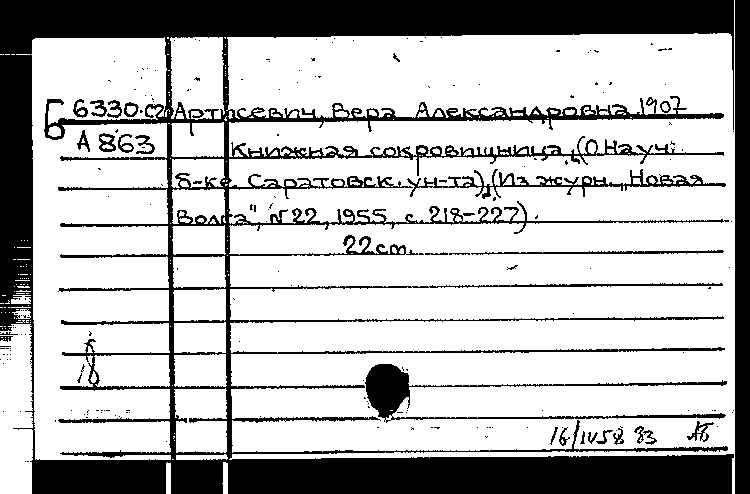 Б 6330.с2 Артисевич, Вера Александровна, 1907
А 863 Книжная сокровищница, (О Науч.
б-ке Саратовск. ун-та), (Из журн. „Новая
Волга", № 22, 1955, с. 218-227).
22 cm.
16/IV58 83 АБ